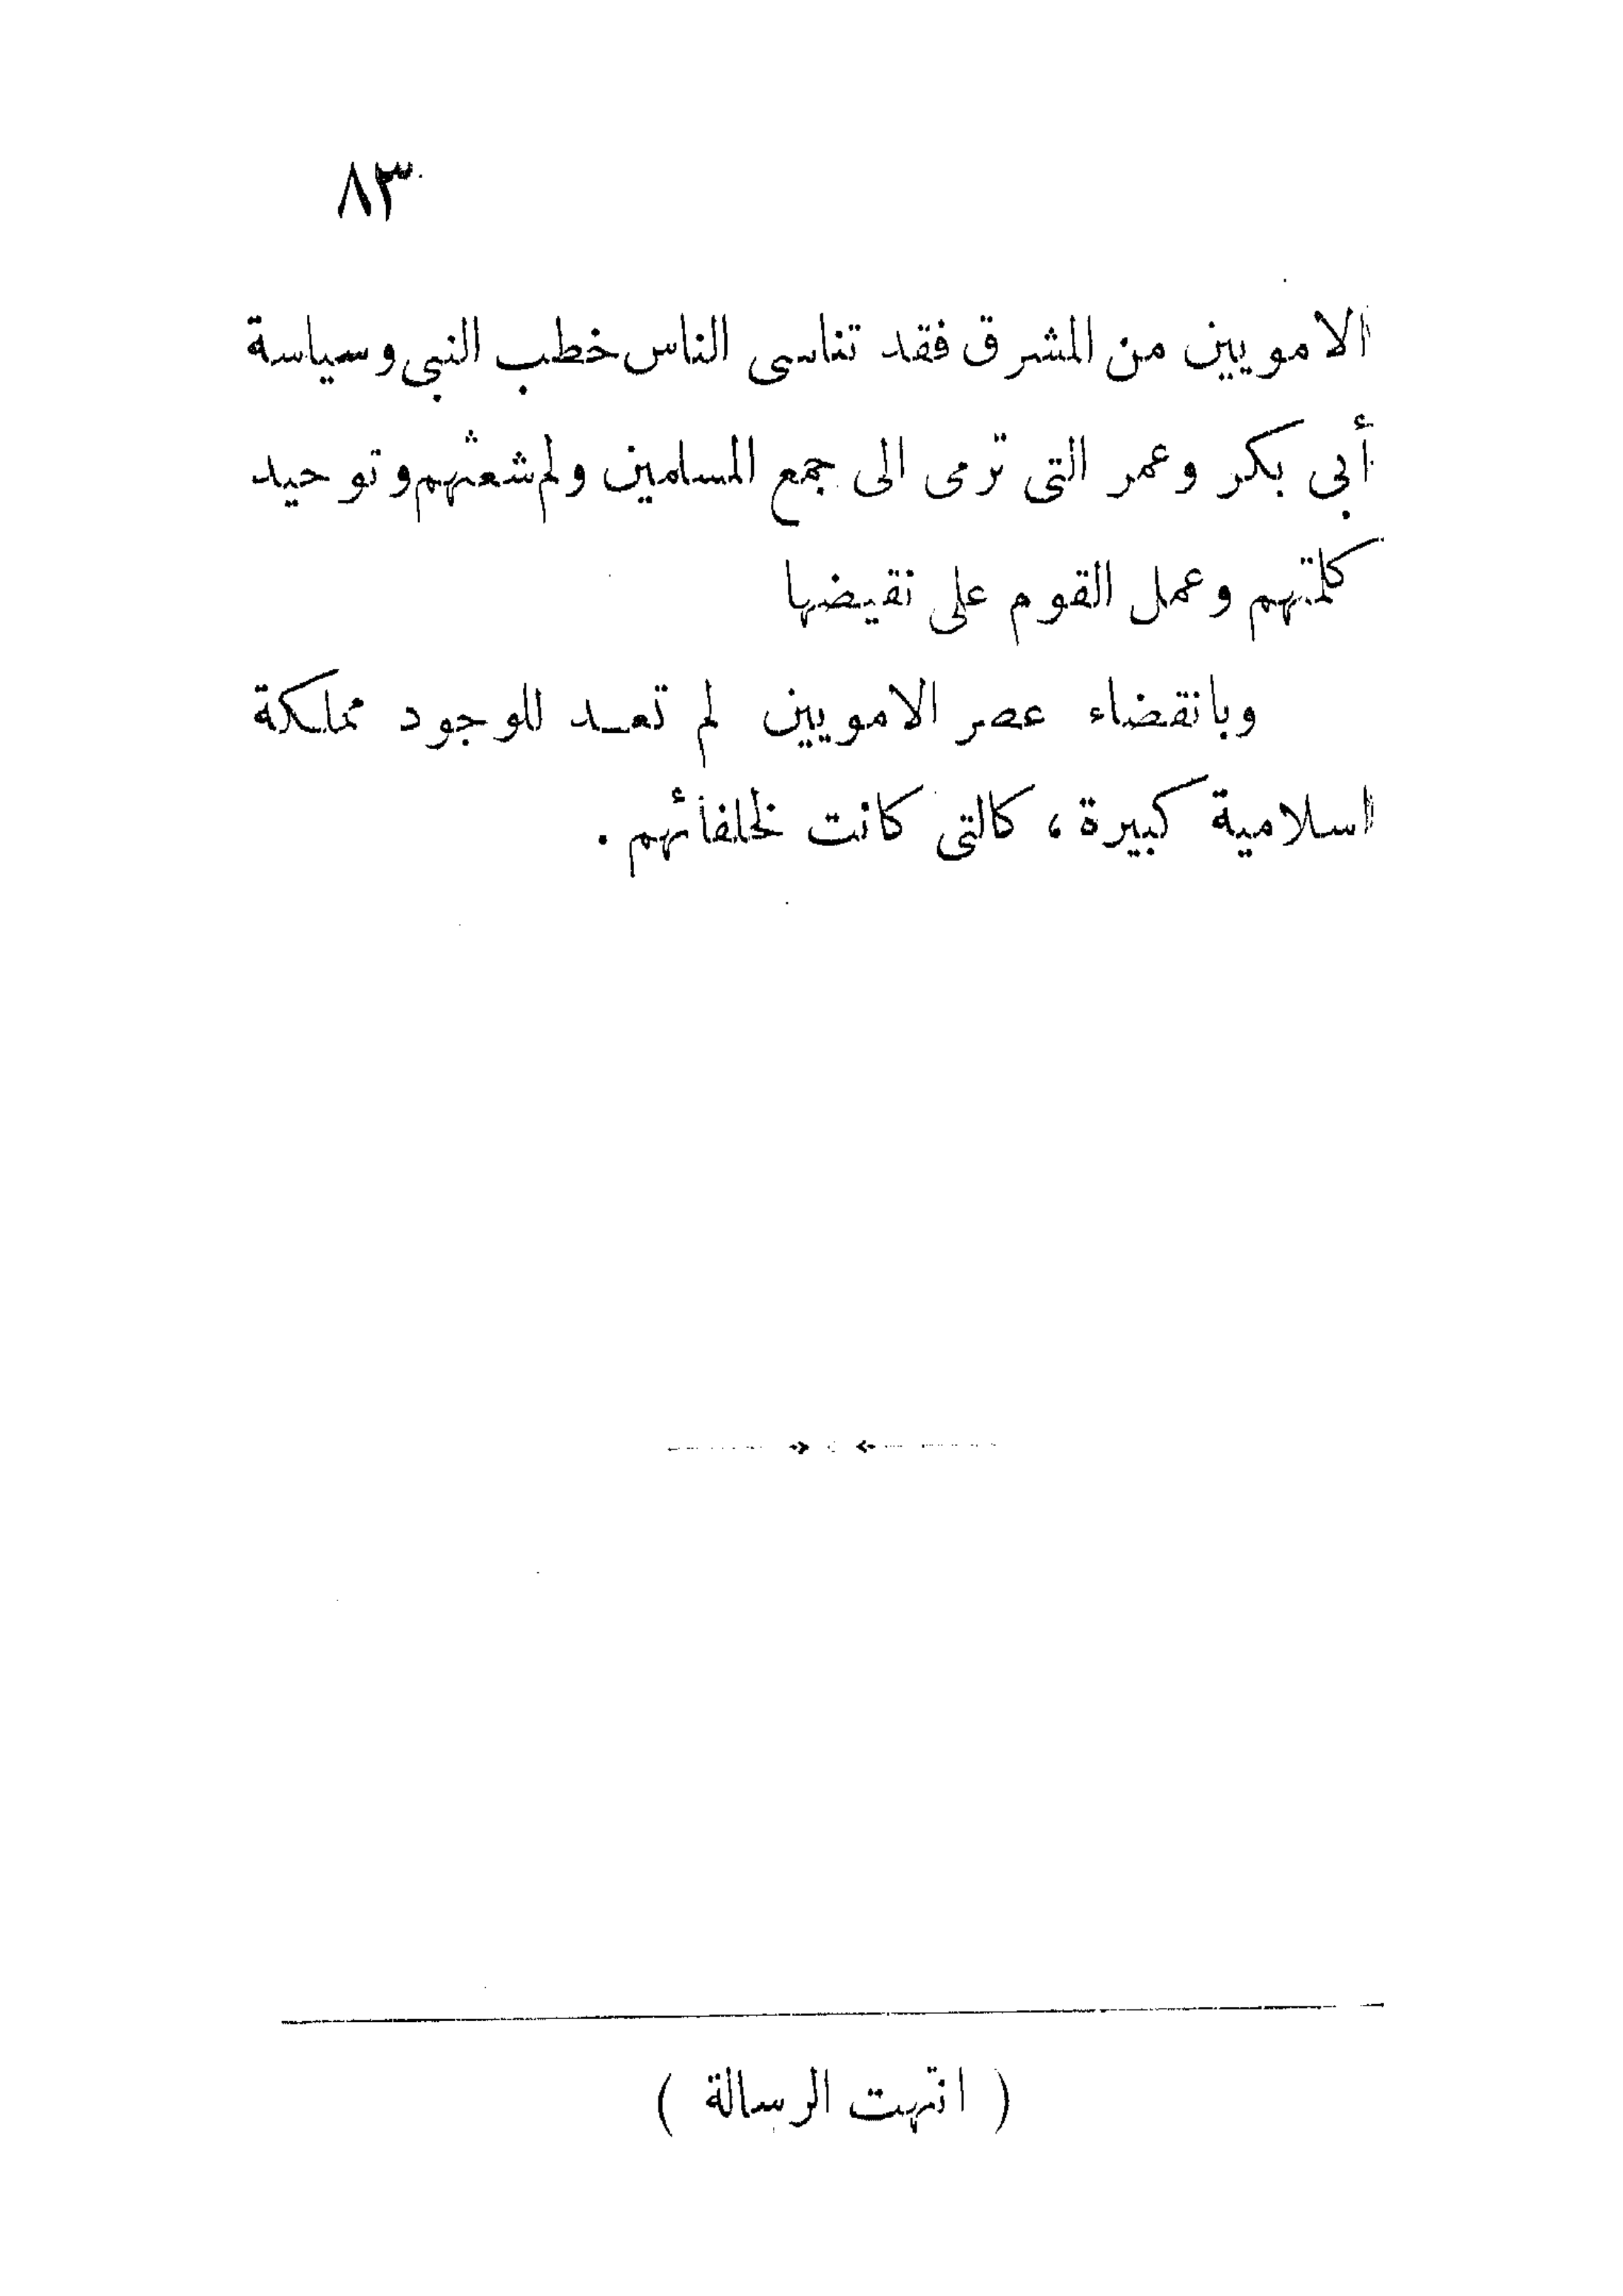 ٨٣
الامويين من المشرق فقد تناسى الناس خطب النبي وسياسة
أبي بكر وعمر التى ترمى الى جمع المسلمين ولم شعثهم وتوحيد
كلمتهم وعمل القوم على نقيضها
وبانقضاء عصر الامويين لم تعد للوجود مملكة
اسلامية كبيرة ، كالتى كانت لخلفائهم .
( انتهت الرسالة )